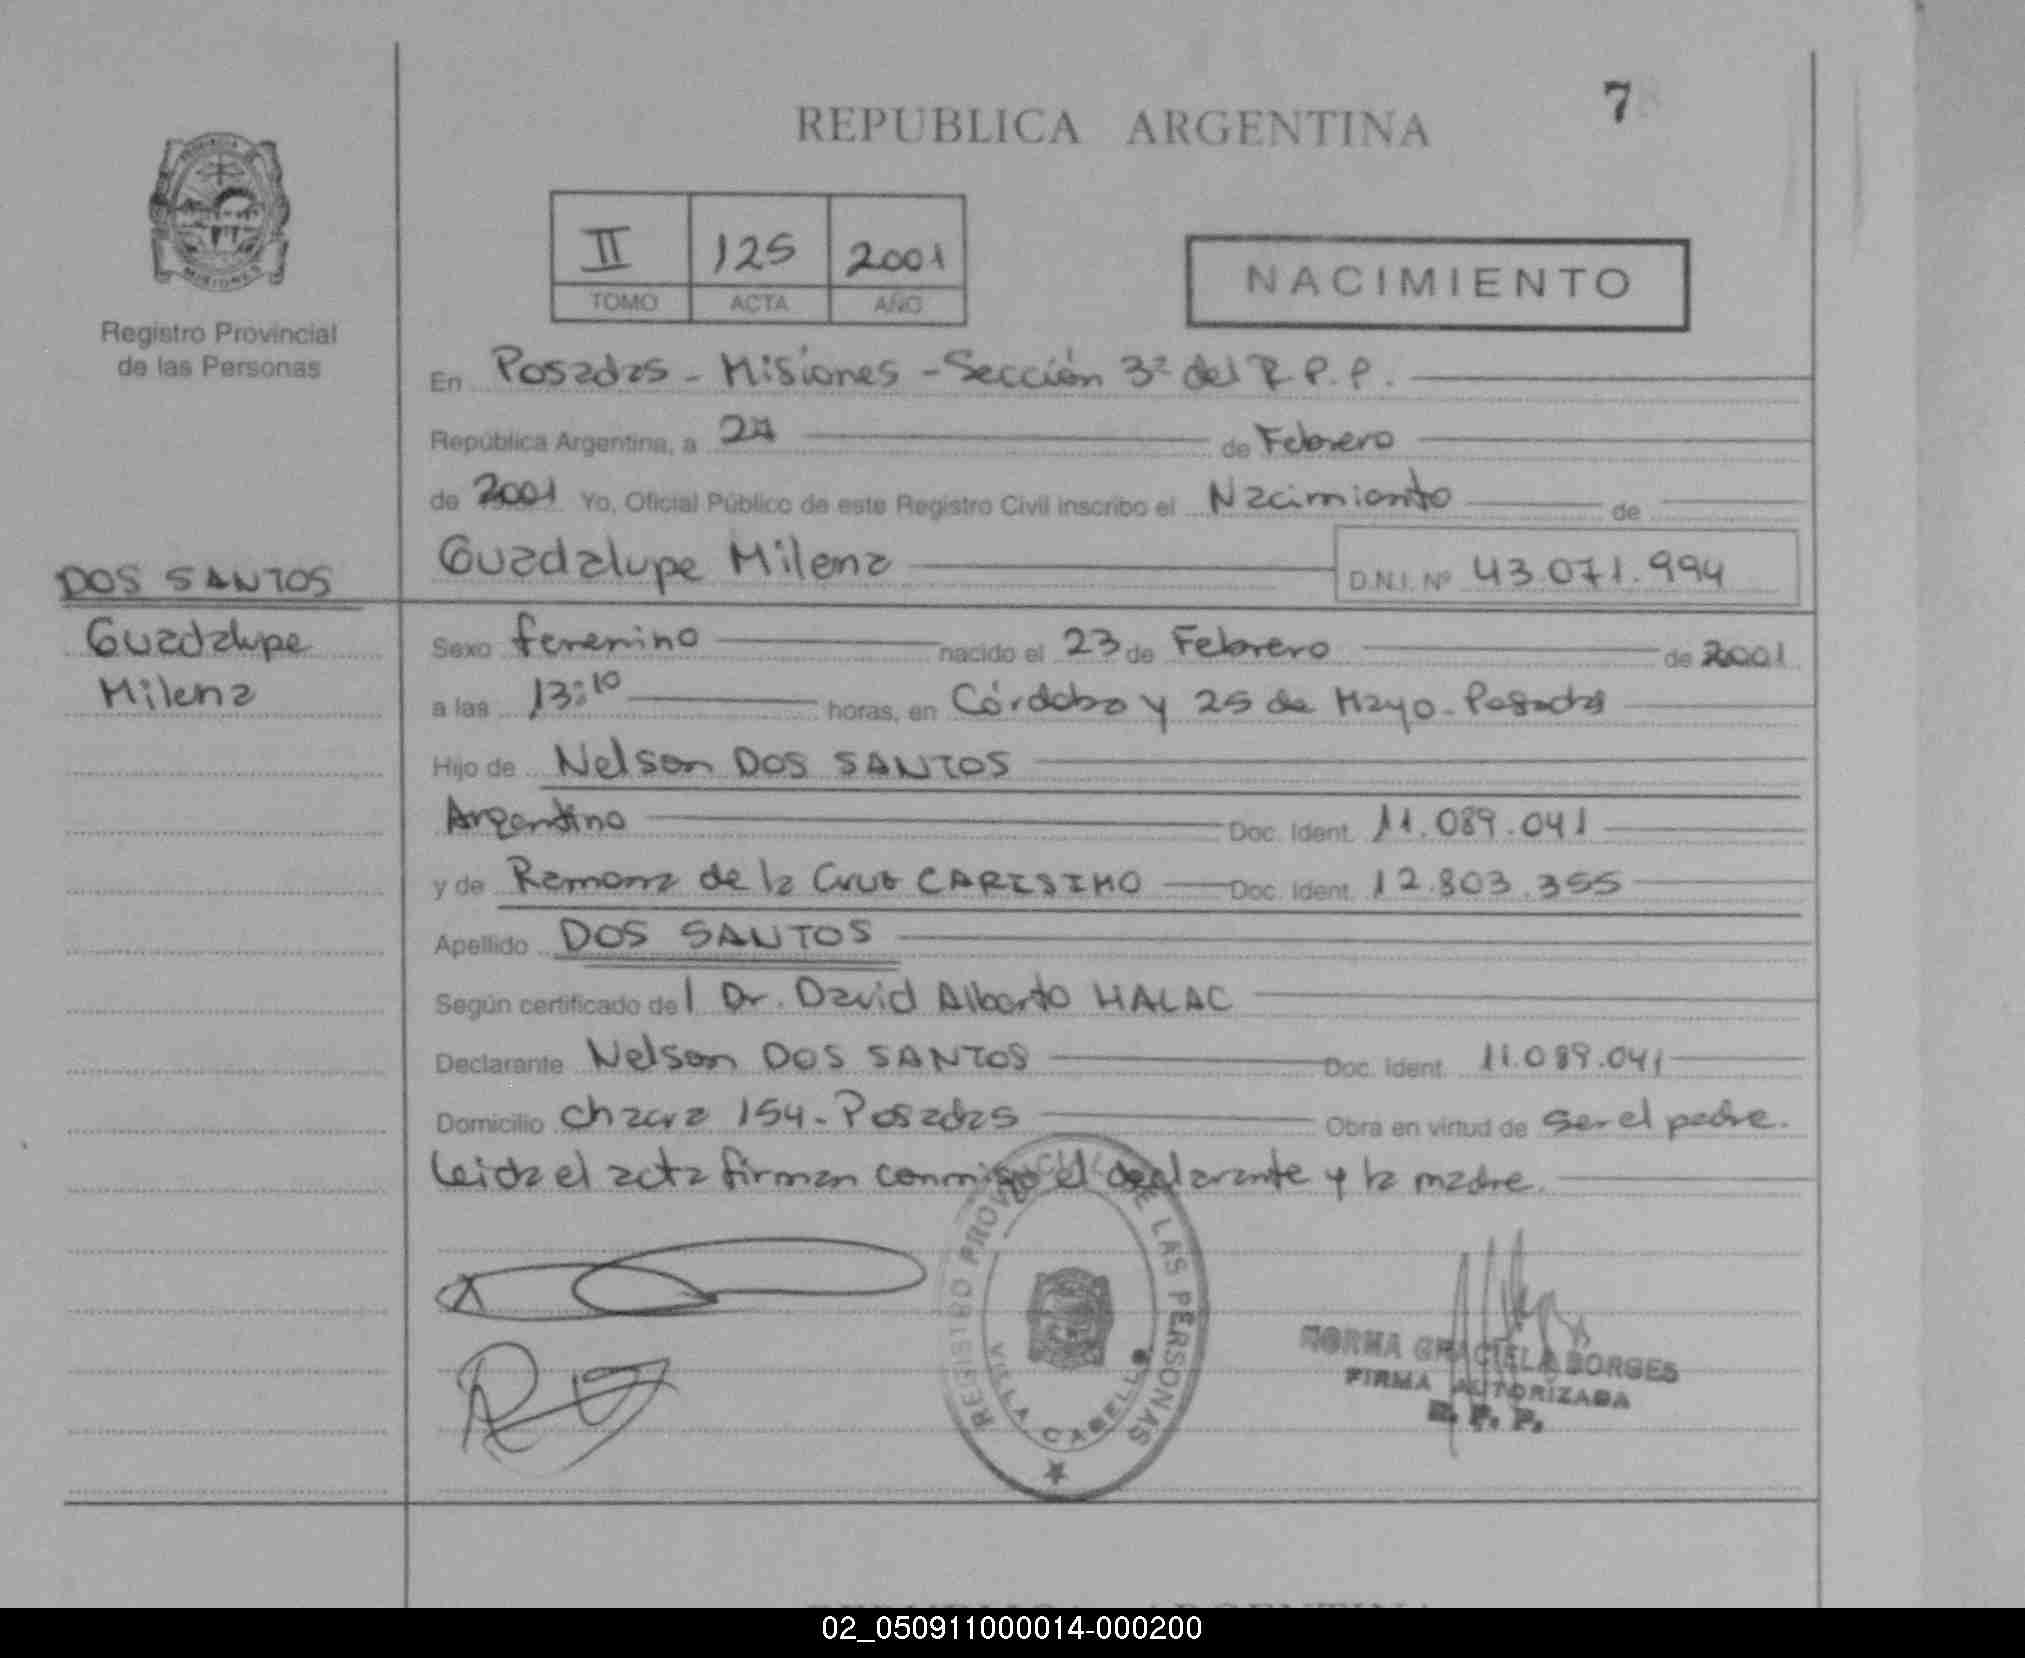 7
REPUBLICA ARGENTINA
PROVINCIA DE
MISIONES
Registro Provincial
de las Personas
II 125 2001
TOMO ACTA AÑO
NACIMIENTO
En Posadas - Misiones - Sección 3ª del R.P.P.
República Argentina, a de Febrero
de 2001 Yo, Oficial Público de este Registro Civil inscribo el Nacimiento de
Guadalupe Milena D.N.I. Nº 43.071.994
DOS SANTOS
Guadalupe
Milena
Sexo femenino nacido el 23 de Febrero de 2001
a las 13:10 horas, en Córdoba y 25 de Mayo - Posadas
Hijo de Nelson DOS SANTOS
Argentino Doc. Ident. 11.089.041
y de Ramona de la Cruz CARISIMO Doc. Ident. 12.803.355
Apellido DOS SANTOS
Según certificado del Dr. David Alberto HALAC
Declarante Nelson DOS SANTOS Doc. Ident. 11.089.041
Domicilio Chacra 154 - Posadas Obra en virtud de ser el padre.
Leida el acta firman conmigo el declarante y la madre.
REGISTRO PROVINCIAL DE LAS PERSONAS
VILLA CABELLO
NORMA GRACIELA BORGES
FIRMA AUTORIZADA
R. P. P.
REPUBLICA ARGENTINA
02_050911000014-000200